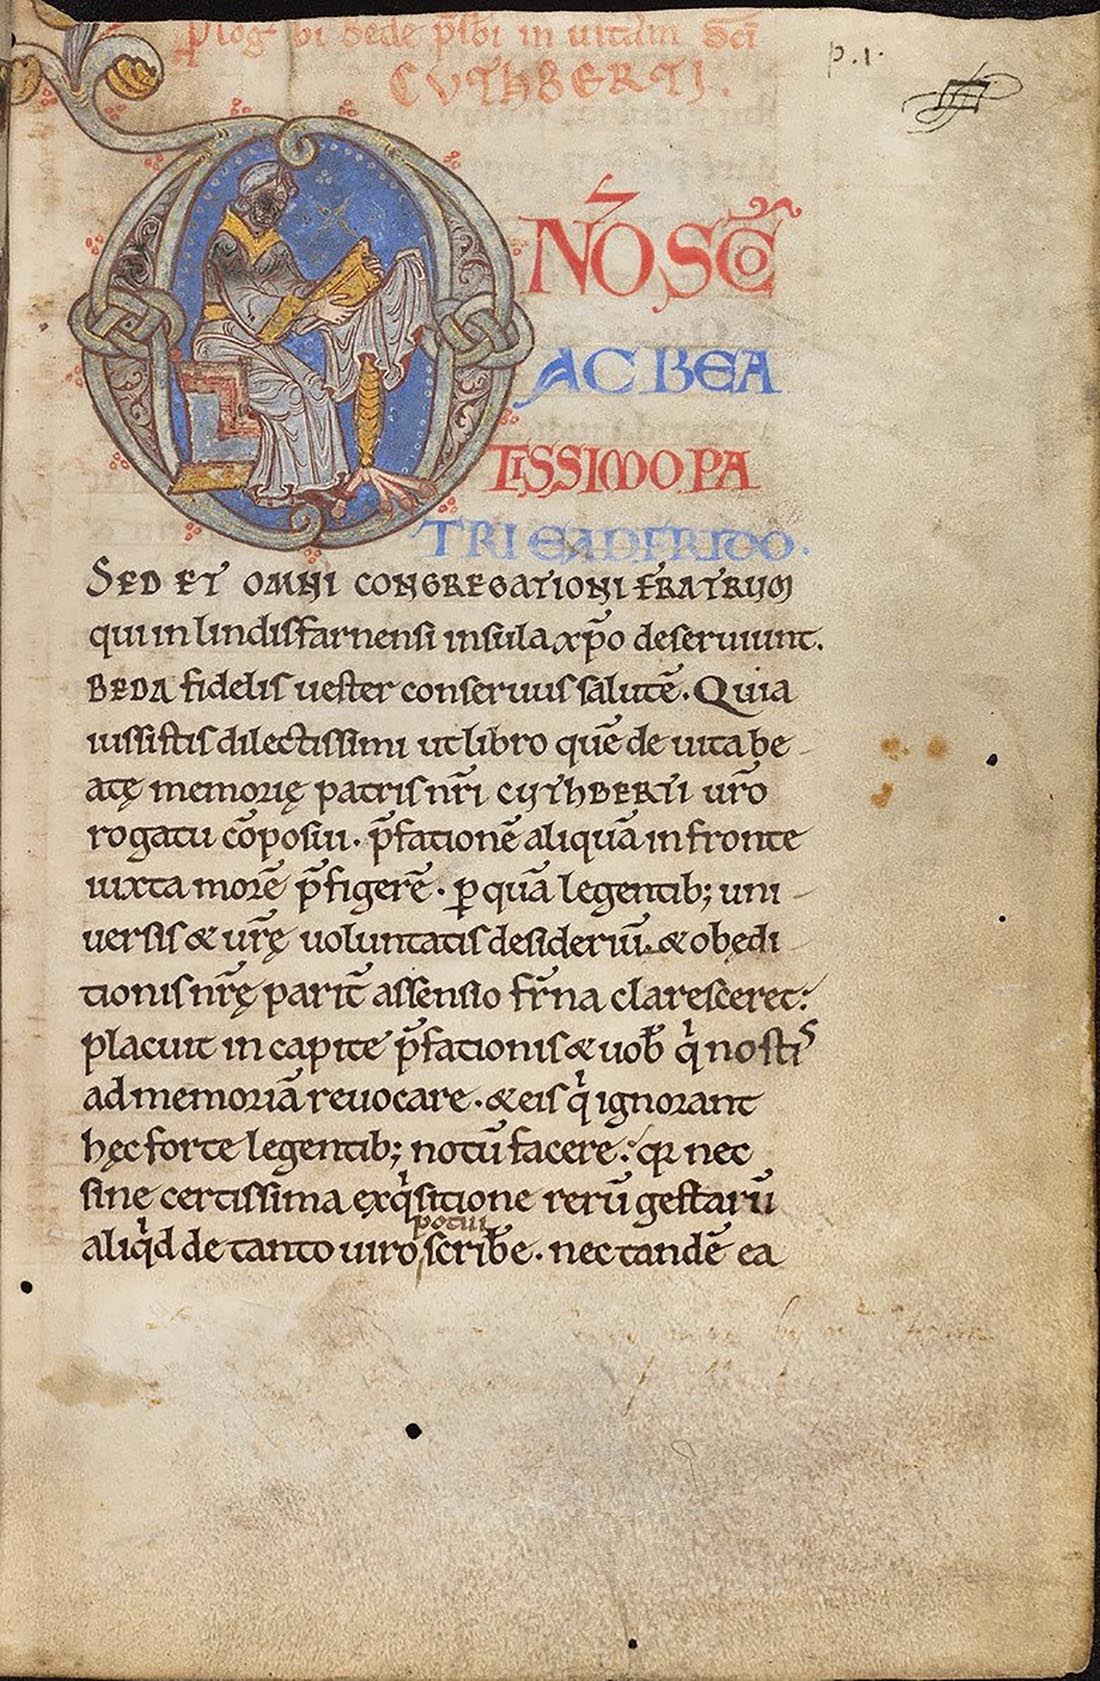 Plog̅ bi Bede p̅sbi in uitam Sc̅i
CVTHBERTI.
p.1.
DN̅O SC̅O
AC BEA
TISSIMO PA
TRI EADFRIDO.
SED ET OMNI CONGREGATIONI FRATRUM
qui in lindisfarnensi insula xp̅o deseruiunt.
BEDA fidelis uester conseruus salute̅. Quia
iussistis dilectissimi ut libro que̅ de uita be-
atę memorię patris nr̅i CUTHBERTI ur̅o
rogatu co̅posui. p̅fatione̅ aliqua̅ in fronte
iuxta more̅ p̅figere̅. ꝑ qua̅ legentib; uni-
uersis & ur̅ę uoluntatis desideriu̅. & obędi
tionis nr̅ę parit̅ assensio fr̅na claresceret:
placuit in capite p̅fationis & uob̅ qͥ nostis
ad memoria̅ reuocare. & eis qͥ ignorant
hęc forte legentib; notu̅ facere: qꝛ nec
sine certissima exqͥsitione reru̅ gestaru̅
aliqͥd de tanto uiro potui scribe̅. nec tande̅ ea